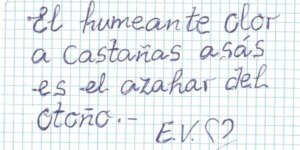 El humeante olor
a castañas asás
es el azahar del
otoño.-
E.V.